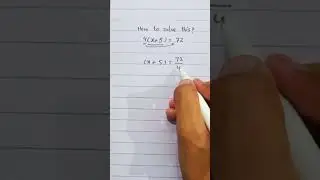 How to solve this?
4(x+5) = 72
(x+5) = 72/4